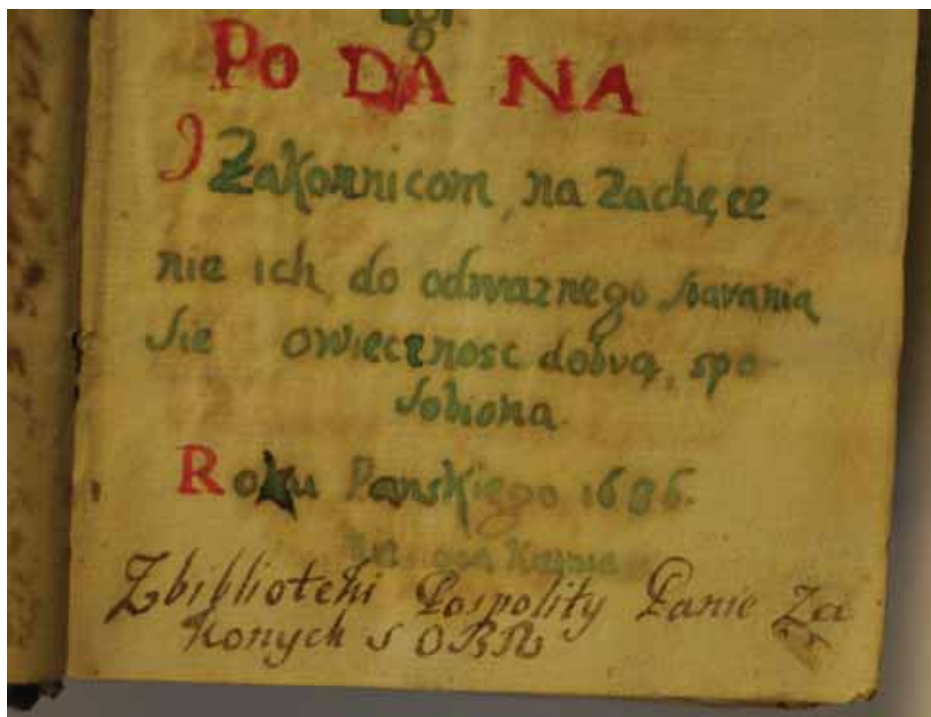 PO DA NA
J Zakonnicom, na Zachęce
nie ich, do odwaznego starania
sie o wiecznosc dobrą, spo
sobiona.
Roku Panskiego 1686.
Zbiblioteki Pospolity Panie Za
konych S O